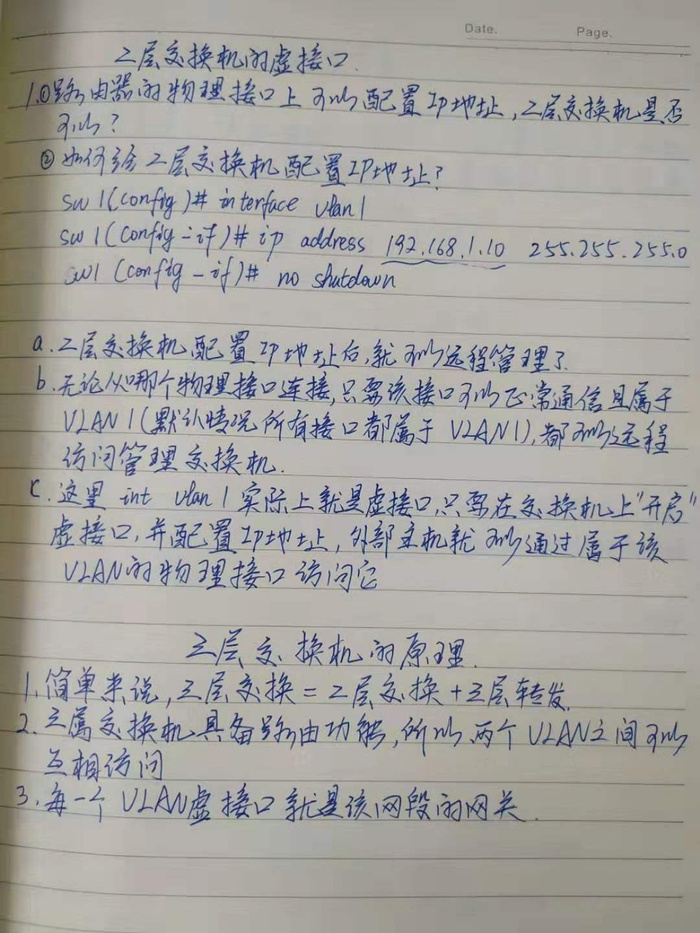 Date.
Page.
二层交换机的虚接口.
1.①路由器的物理接口上可以配置IP地址,二层交换机是否
可以?
②如何给二层交换机配置IP地址?
sw1(config)# interface vlan1
sw1(config-if)# ip address 192.168.1.10 255.255.255.0
sw1(config-if)# no shutdown
a.二层交换机配置IP地址后,就可以远程管理了
b.无论从哪个物理接口连接,只要该接口可以正常通信且属于
VLAN1(默认情况所有接口都属于VLAN1),都可以远程
访问管理交换机.
c.这里int vlan1实际上就是虚接口,只要在交换机上"开启"
虚接口,并配置IP地址,外部主机就可以通过属于该
VLAN的物理接口访问它
三层交换机的原理.
1.简单来说,三层交换=二层交换+三层转发.
2.三层交换机具备路由功能,所以两个VLAN之间可以
互相访问
3.每一个VLAN虚接口就是该网段的网关.